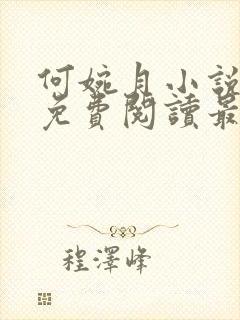 何婉月小說
免費閱讀最
程澤峰